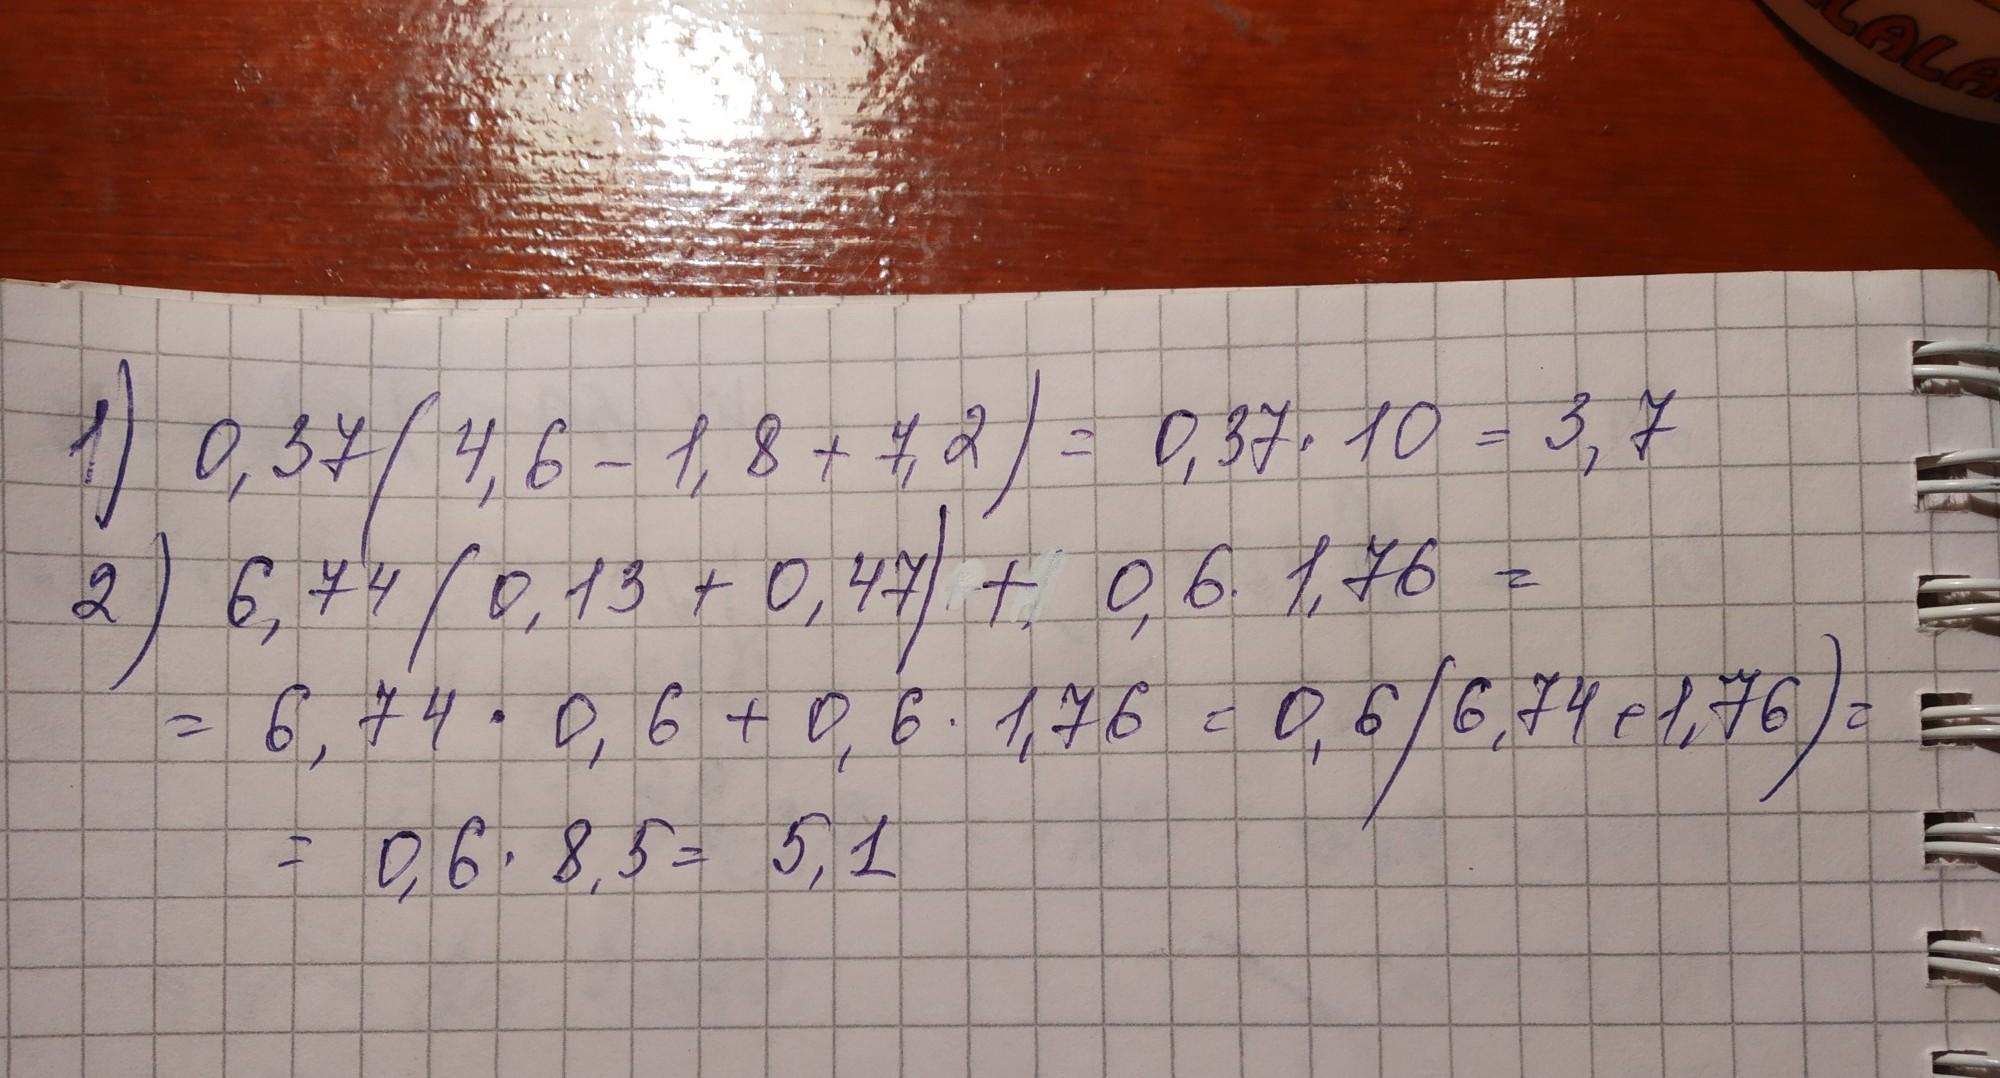 1) 0,37(4,6-1,8+7,2)=0,37·10=3,7
2) 6,74(0,13+0,47)+0,6·1,76=
=6,74·0,6+0,6·1,76=0,6(6,74+1,76)=
=0,6·8,5=5,1